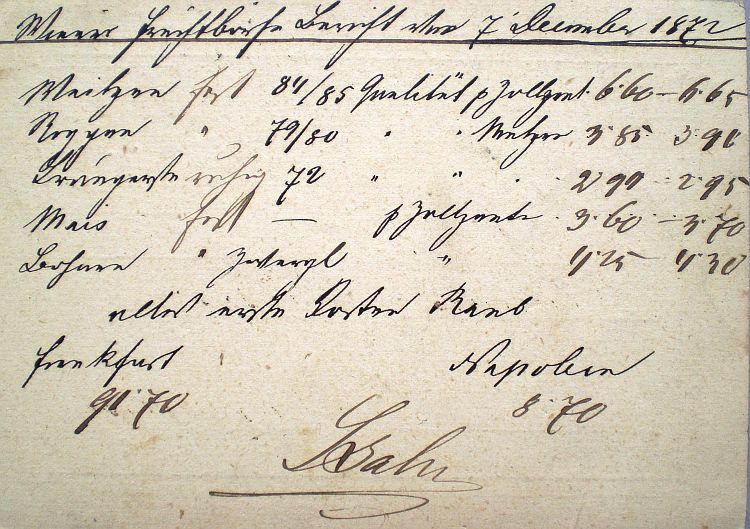 Wiener Fruchtbörse Bericht vom 7 December 1872
Weitzen fest 84/85 Qualität p Zollzent. 6.60 – 6.65
Roggen " 79/80 " " Metzen 3.85 3.90
Braugerste ruhig 72 " " 2.90 – 2.95
Mais fest — p Zollzent. 3.60 – 3.70
Bohnen " Zwergl " 4.25 – 4.30
alles erste Kosten Raab
Frankfurt Napoleon
91.70 8.70